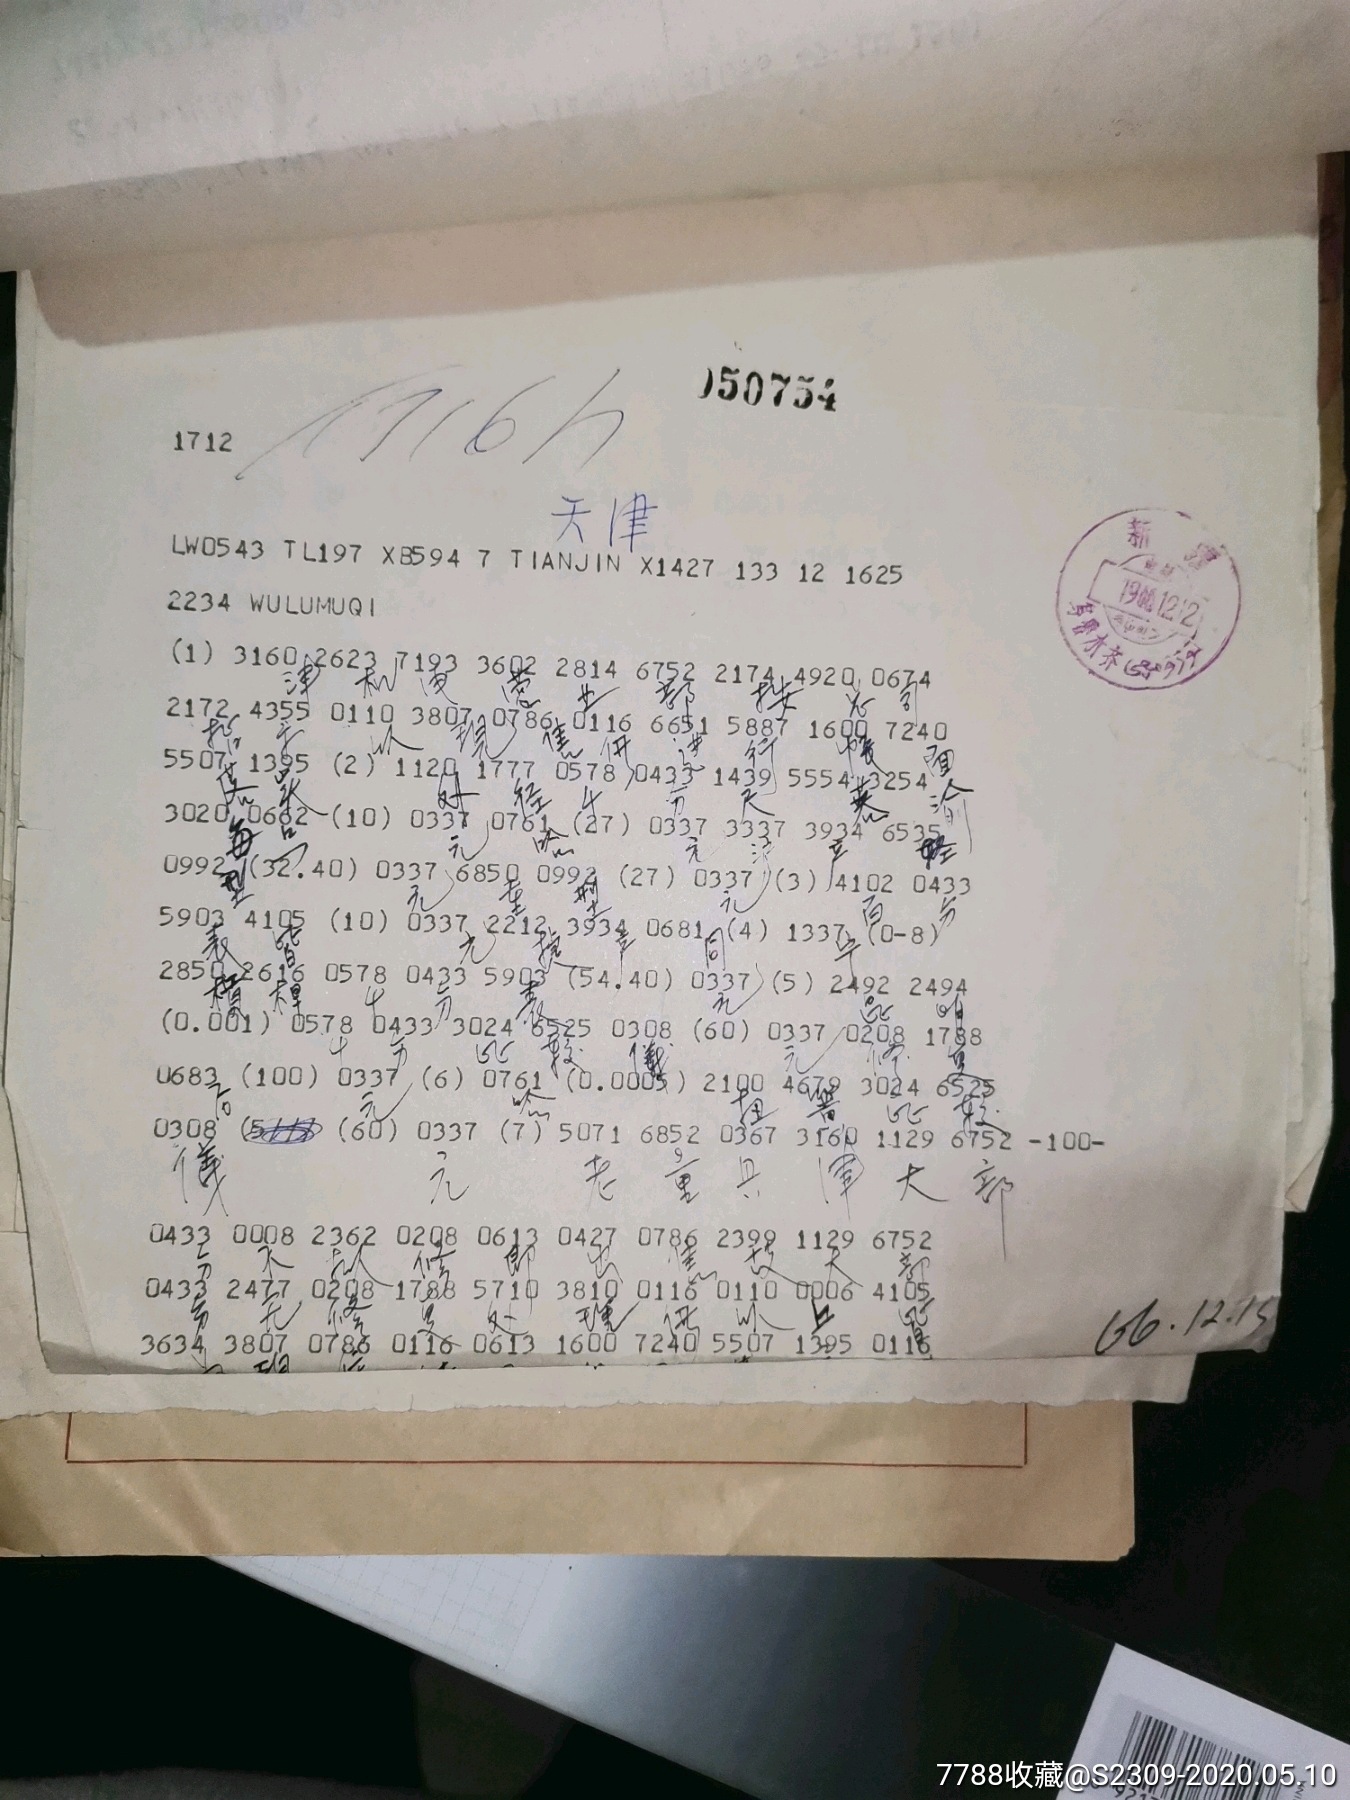 050754
1712
1716
天津
LW0543 TL197 XB594 7 TIANJIN X1427 133 12 1625
2234 WULUMUQI
新疆
1966.12.12
乌鲁木齐
(1) 3160 2623 7193 3602 2814 6752 2174 4920 0674
津 机 营 业 部 按
2172 4355 0110 3807 0786 0116 6651 5887 1600 7240
以 现 佳 供 进 行 面
5507 1395 (2) 1120 1777 0578 0433 1439 5554 3254
外 径 千 分 天 渝
3020 0662 (10) 0337 0761 (27) 0337 3337 3934 6535
每 品 元 哈 元
0992 (32.40) 0337 6850 0992 (27) 0337 (3) 4102 0433
型 元 型 元 百 分
5903 4105 (10) 0337 2212 3934 0681 (4) 1337 (0-8)
表 皆 元 同
2850 2616 0578 0433 5903 (54.40) 0337 (5) 2492 2494
横 桿 千 分 表 元
(0.001) 0578 0433 3024 6525 0308 (60) 0337 0208 1788
千 分 比 较 儀 元 修 复
0683 (100) 0337 (6) 0761 (0.0005) 2100 4679 3024 6525
后 元 哈 扭 簧 比 较
0308 (60) 0337 (7) 5071 6852 0367 3160 1129 6752 -100-
儀 元 老 童 具 津 大 部
0433 0008 2362 0208 0613 0427 0786 2399 1129 6752
分 不 修 即 出 佳 故 大 部
0433 2477 0208 1788 5710 3810 0116 0110 0006 4105
分 无 修 复 处 理 供 以 上 皆
3634 3807 0786 0116 0613 1600 7240 5507 1395 0116
66.12.15
7788收藏@S2309-2020.05.10